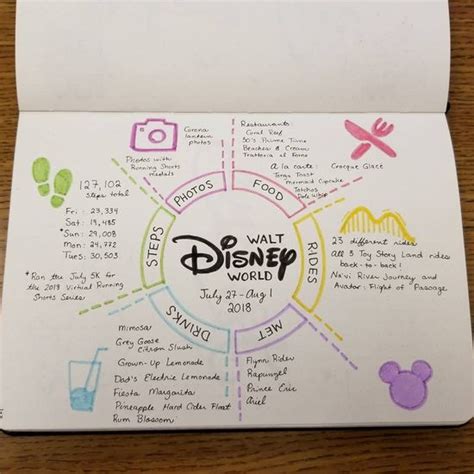 Corona
lantern
photos
Photos with
Running Shorts
medals
PHOTOS
Restaurants:
Coral Reef
50's Prime Time
Beaches & Cream
Trattoria al Forno
A la carte: Croque Glace
Toast
Mermaid Cupcake
Totchos
Dole Whip
FOOD
127,102
steps total
Fri: 23,334
Sat: 19,485
*Sun: 29,008
Mon: 24,772
Tues: 30,503
*Ran the July 5K for
the 2018 Virtual Running
Shorts Series
STEPS
WALT
Disney
WORLD
July 27 - Aug 1
2018
RIDES
23 different rides
All 3 Toy Story Land rides
back-to-back!
Na'vi River Journey and
Avatar: Flight of Passage
DRINKS
Mimosa
Grey Goose
Citron Slush
Grown-Up Lemonade
Dad's Electric Lemonade
Fiesta Margarita
Pineapple Hard Cider Float
Rum Blossom
MET
Flynn Rider
Rapunzel
Prince Eric
Ariel